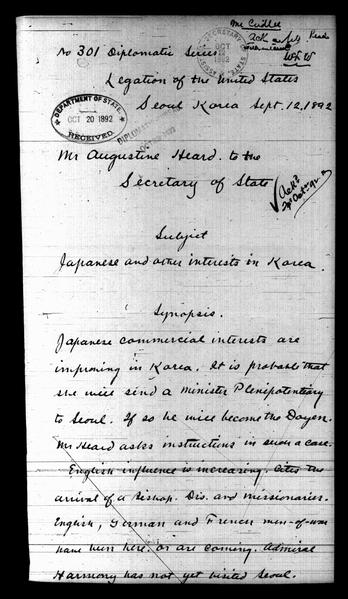 Mr Cridler
No 301 Diplomatic Series
Legation of the United States
Seoul Korea Sept. 12, 1892
DEPARTMENT OF STATE
OCT 20 1892
RECEIVED
Mr Augustine Heard to the
Secretary of State
Subject
Japanese and other interests in Korea.
Synopsis.
Japanese commercial interests are
improving in Korea. It is probable that
she will send a Minister Plenipotentiary
to Seoul. If so he will become the Doyen.
Mr Heard asks instructions in such a case.
English influence is increasing. Cites the
arrival of a Bishop. Drs. and missionaries.
English, German and French men-of-war
have been here, or are coming. Admiral
Harmony has not yet visited Seoul.